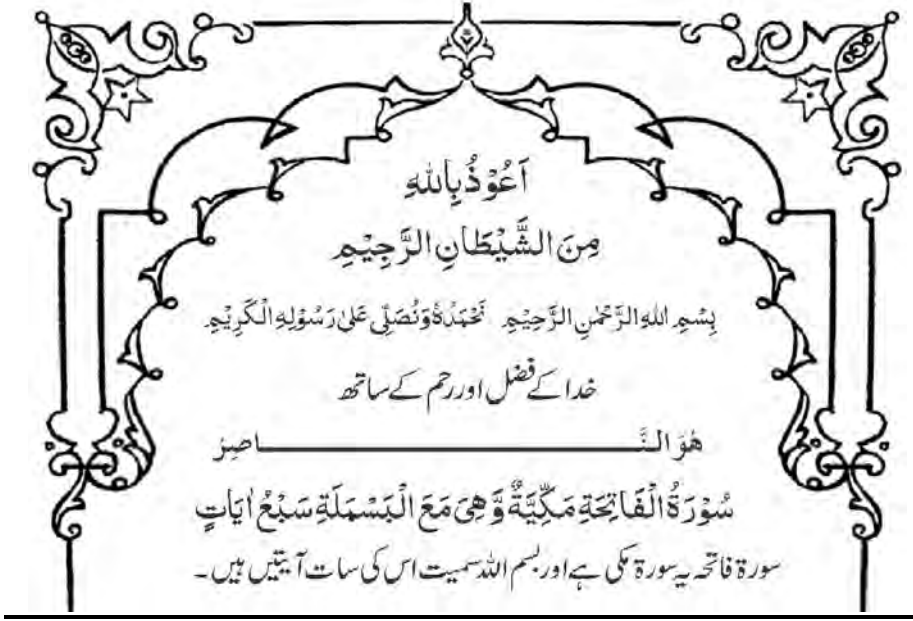 اَعُوْذُ بِاللّٰهِ
مِنَ الشَّيْطَانِ الرَّجِيْمِ
بِسْمِ اللّٰهِ الرَّحْمٰنِ الرَّحِيْمِ نَحْمَدُهٗ وَنُصَلِّيْ عَلٰى رَسُوْلِهِ الْكَرِيْمِ
خدا کے فضل اور رحم کے ساتھ
هُوَ النَّـــــــــــــاصِرُ
سُوْرَةُ الْفَاتِحَةِ مَكِّيَّةٌ وَّهِيَ مَعَ الْبَسْمَلَةِ سَبْعُ اٰيَاتٍ
سورۃ فاتحہ یہ سورۃ مکی ہے اور بسم اللہ سمیت اس کی سات آیتیں ہیں۔